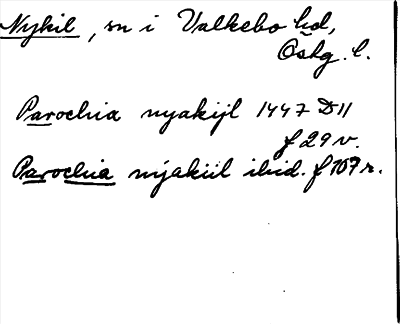 Nykil, sn i Valkebo hd,
Östg. l.
Parochia nyakijl 1447 D11
f 29 v.
Parochia nyakiil ibid. f 107 r.